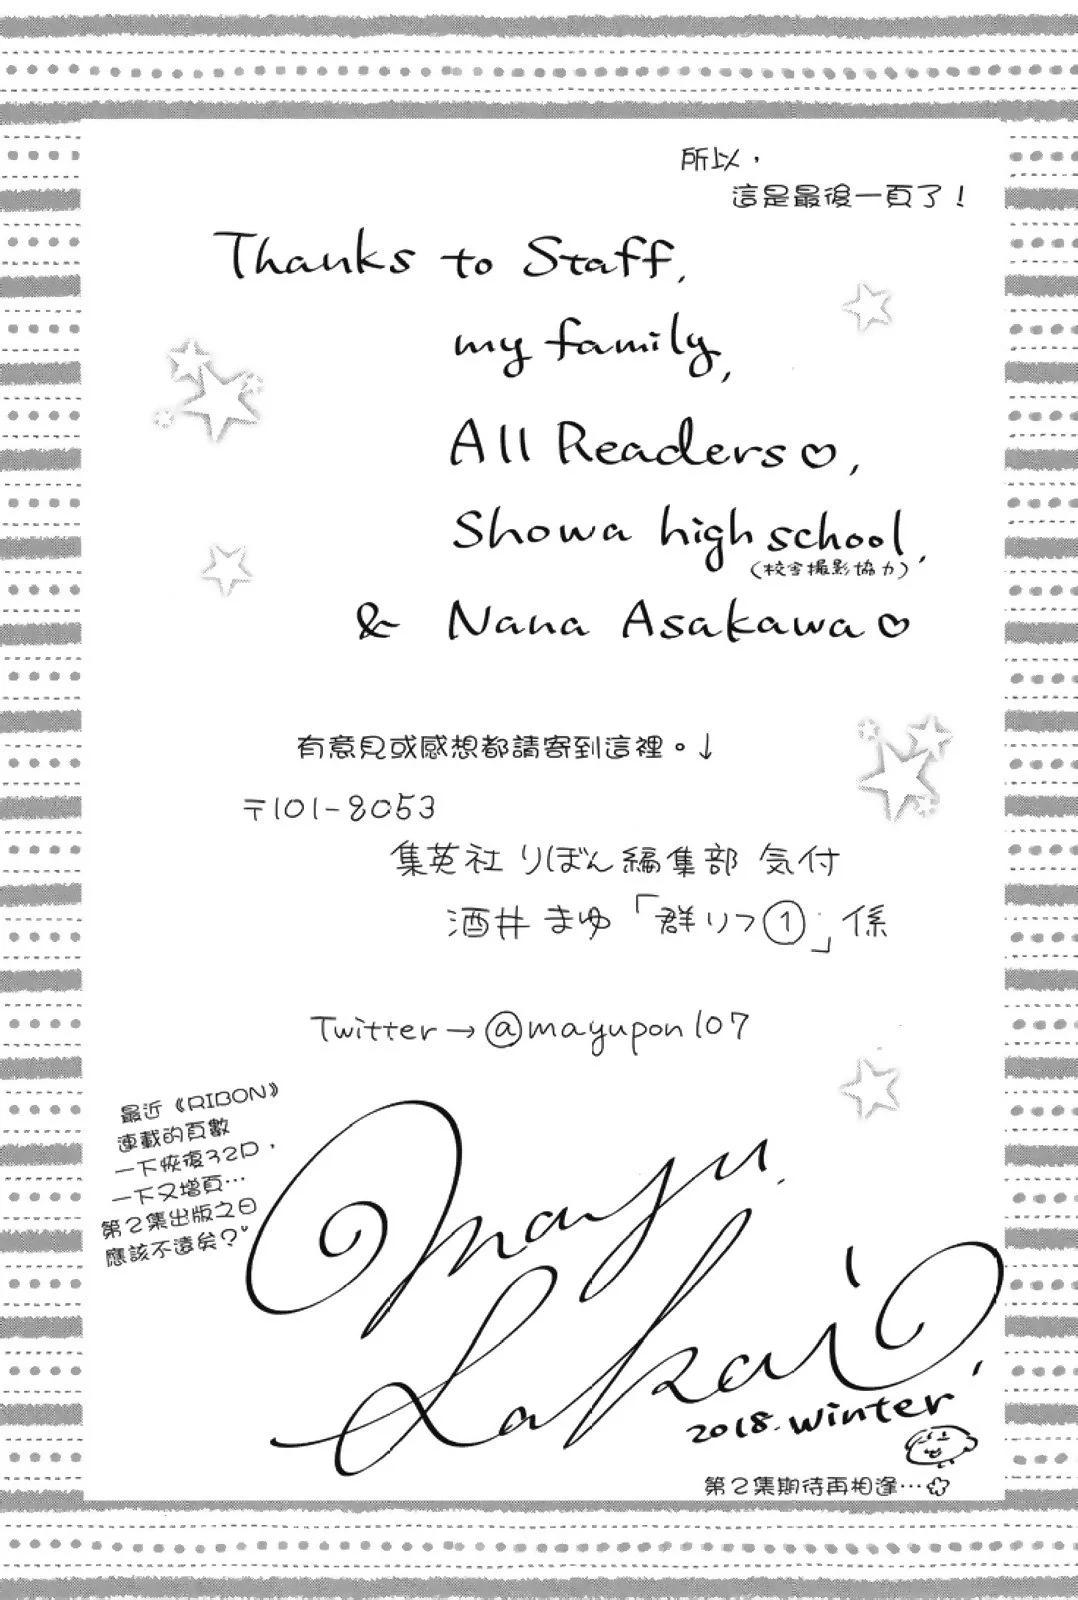 所以，
這是最後一頁了！
Thanks to Staff,
my family,
All Readers♡,
Showa high school,
(校舎撮影協力)
& Nana Asakawa♡
有意見或感想都請寄到這裡。↓
〒101-8053
集英社 りぼん編集部 気付
酒井 まゆ「群リフ①」係
Twitter→@mayupon107
最近《RIBON》
連載的頁數
一下恢復32P，
一下又增頁…
第2集出版之日
應該不遠矣？
Mayu.
Sakai
2018.winter
第2集期待再相逢…